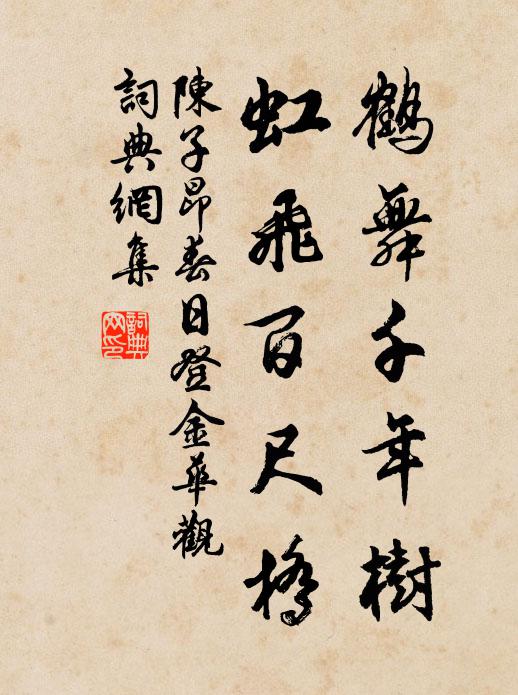 鶴舞千年樹
虹飛百尺橋
陳子昂春日登金華觀
詞典網集
詞典
网印